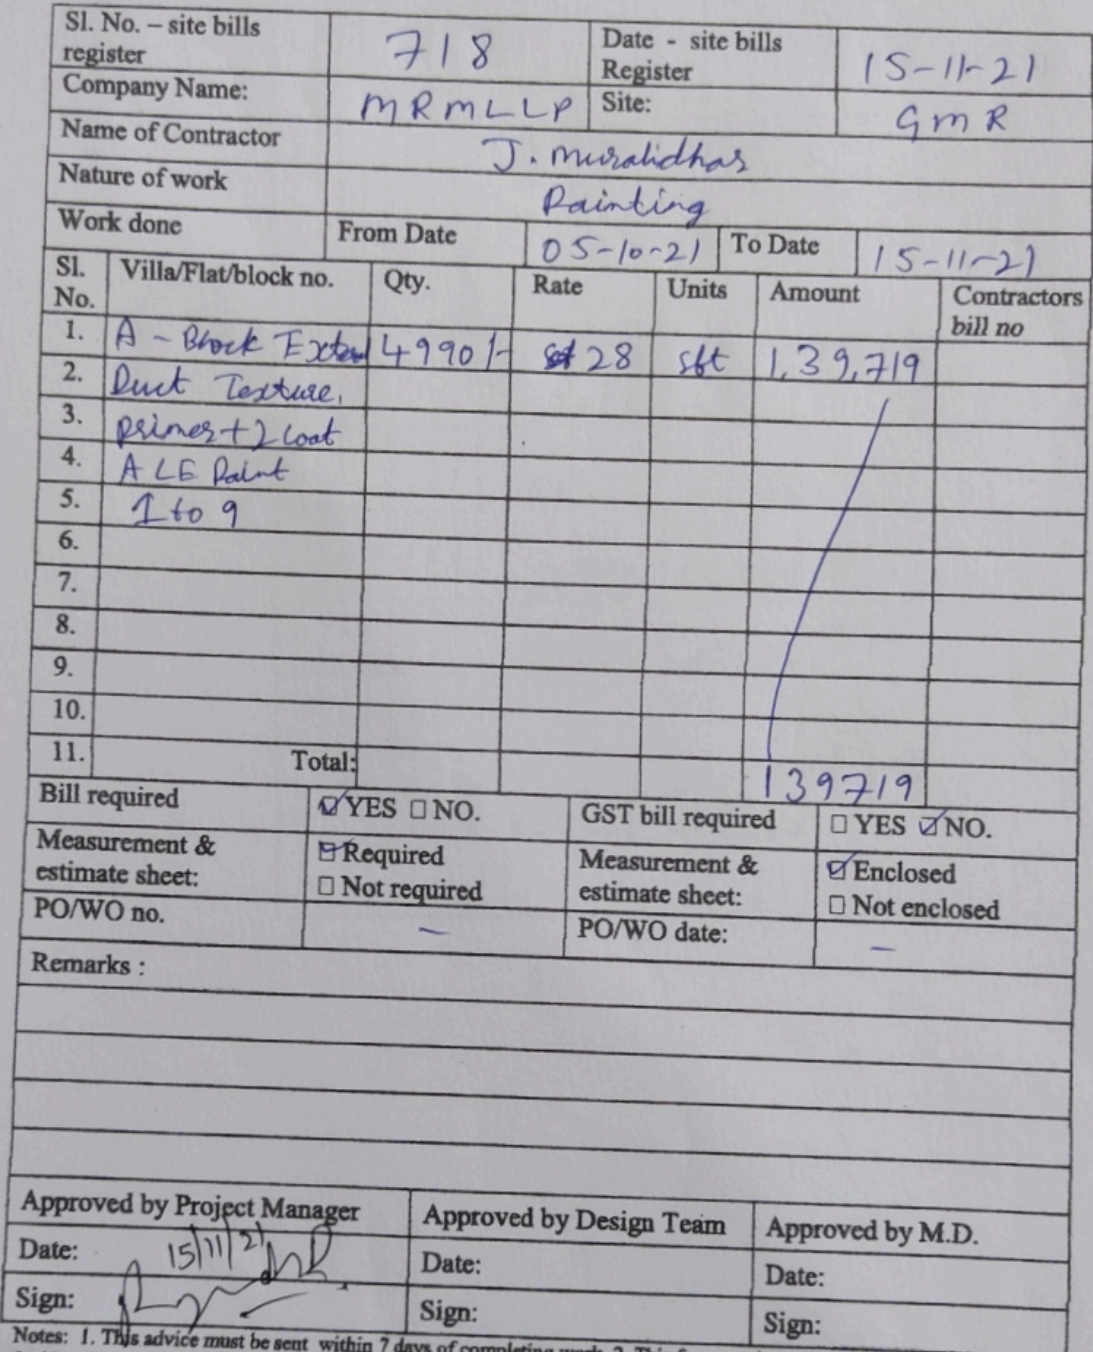 Sl. No. – site bills register 718 Date - site bills Register 15-11-21
Company Name: MRMLLP Site: GMR
Name of Contractor J. Muralidhar
Nature of work Painting
Work done From Date 05-10-21 To Date 15-11-21
Sl. No. Villa/Flat/block no. Qty. Rate Units Amount Contractors bill no
1. A - Block 4990/- 28 sft 1,39,719
2. Duct Texture,
3. primer + 2 coat
4. ACE Paint
5. 1 to 9
6.
7.
8.
9.
10.
11. Total: 139719
Bill required ☑ YES ☐ NO. GST bill required ☐ YES ☑ NO.
Measurement & estimate sheet: ☑ Required ☐ Not required Measurement & estimate sheet: ☑ Enclosed ☐ Not enclosed
PO/WO no. – PO/WO date: –
Remarks :
Approved by Project Manager Approved by Design Team Approved by M.D.
Date: 15/11/21 Date: Date:
Sign: Sign: Sign:
Notes: 1. This advice must be sent within 7 days of completing work. 2. This